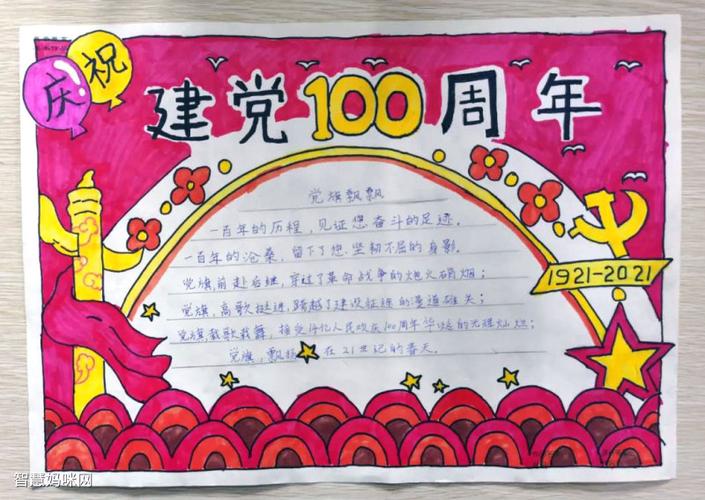 庆祝
建党100周年
党旗飘飘
一百年的历程,见证您奋斗的足迹。
一百年的沧桑,留下了您坚韧不屈的身影。
党旗前赴后继,穿过了革命战争的炮火硝烟;
党旗,高歌挺进,跨越了建设征途的漫道雄关;
党旗,载歌载舞,接受亿人民欢庆100周年华诞的光辉灿烂;
党旗,飘扬在21世纪的春天。
1921-2021
智慧妈咪网